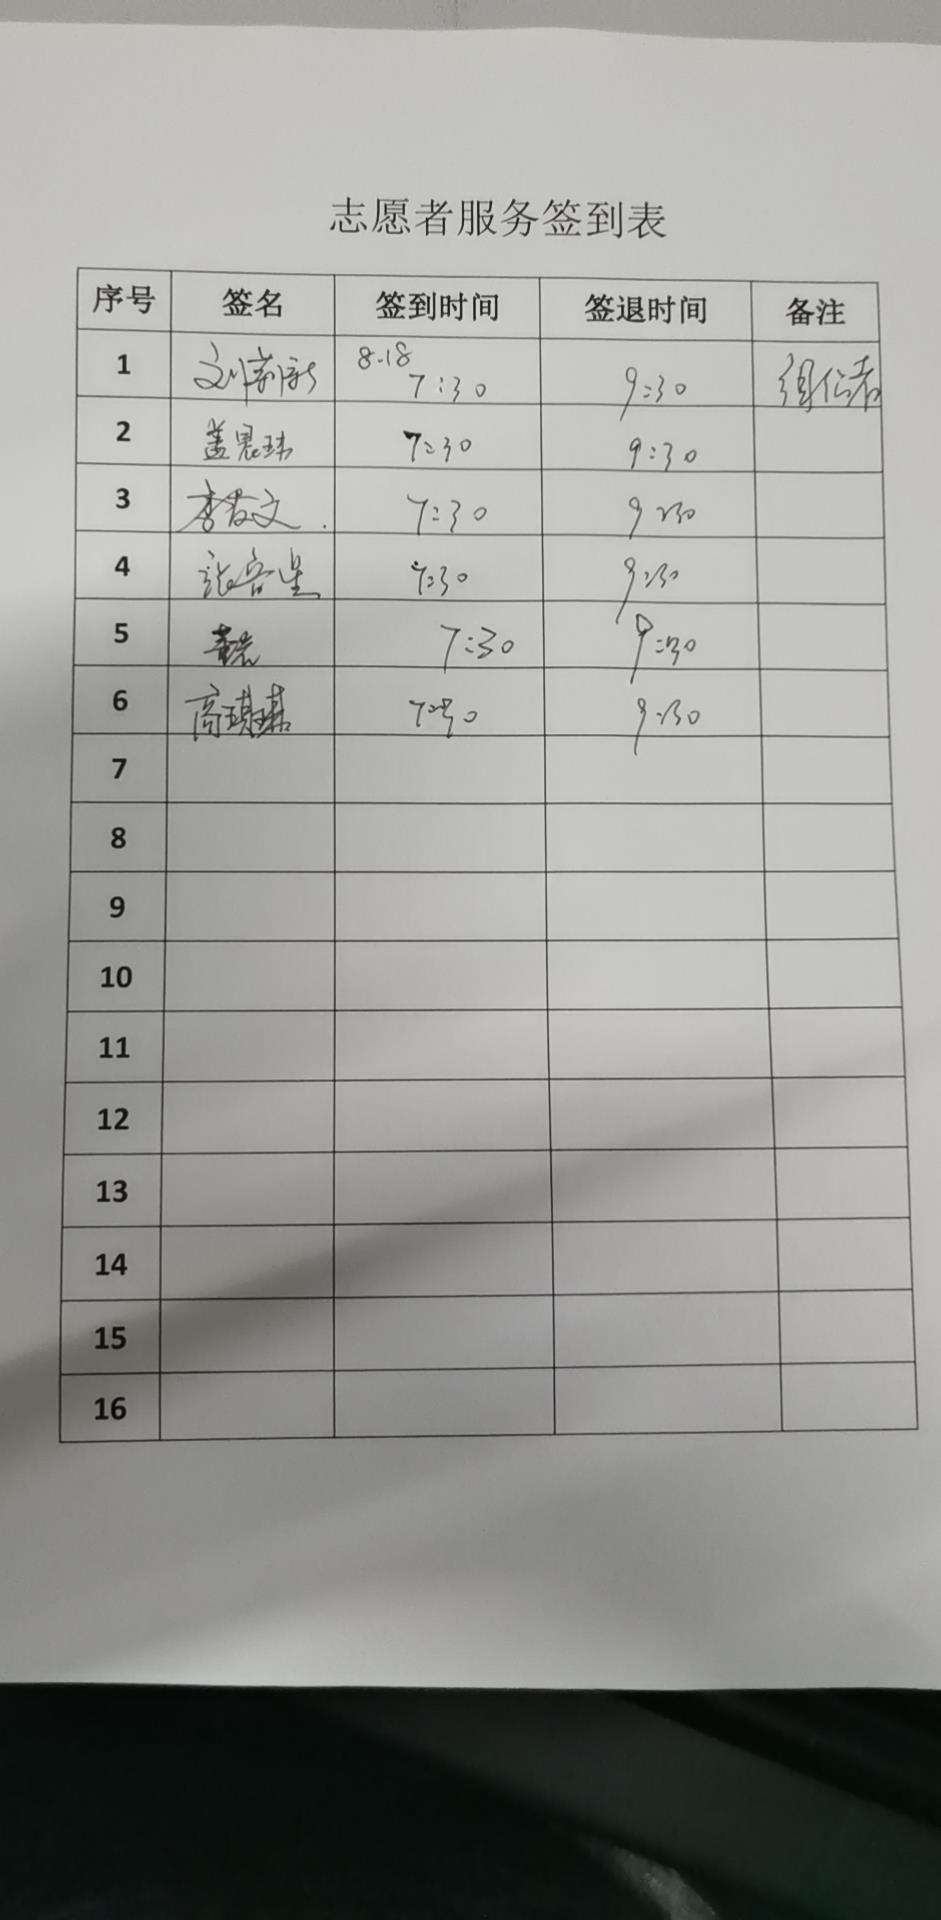 志愿者服务签到表
序号 签名 签到时间 签退时间 备注
1 8.18 7:30 9:30
2 盖晨玮 7:30 9:30
3 李友文 7:30 9:30
4 7:30 9:30
5 7:30 9:30
6 高琪琪 7:30 9:30
7
8
9
10
11
12
13
14
15
16